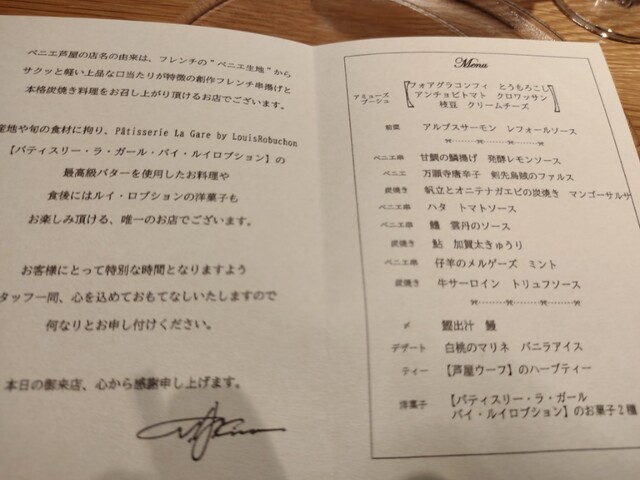 ベニエ芦屋の店名の由来は、フレンチの"ベニエ生地"から
サクッと軽い上品な口当たりが特徴の創作フレンチ串揚げと
本格炭焼き料理をお召し上がり頂けるお店でございます。
産地や旬の食材に拘り、Pâtisserie La Gare by LouisRobuchon
【パティスリー・ラ・ガール・バイ・ルイロブション】の
最高級バターを使用したお料理や
食後にはルイ・ロブションの洋菓子も
お楽しみ頂ける、唯一のお店でございます。
お客様にとって特別な時間となりますよう
タッフ一同、心を込めておもてなしいたしますので
何なりとお申し付けください。
本日の御来店、心から感謝申し上げます。
Menu
アミューズ ブーシュ
フォアグラコンフィ とうもろこし
アンチョビトマト クロワッサン
枝豆 クリームチーズ
前菜 アルプスサーモン レフォールソース
ベニエ串 甘鯛の鱗揚げ 発酵レモンソース
ベニエ 万願寺唐辛子 剣先烏賊のファルス
炭焼き 帆立とオニテナガエビの炭焼き マンゴーサルサ
ベニエ串 ハタ トマトソース
ベニエ串 鱧 雲丹のソース
炭焼き 鮎 加賀太きゅうり
ベニエ串 仔羊のメルゲーズ ミント
炭焼き 牛サーロイン トリュフソース
〆 鰹出汁 鰻
デザート 白桃のマリネ バニラアイス
ティー 【芦屋ウーフ】のハーブティー
洋菓子 【パティスリー・ラ・ガール
バイ・ルイロブション】のお菓子2種